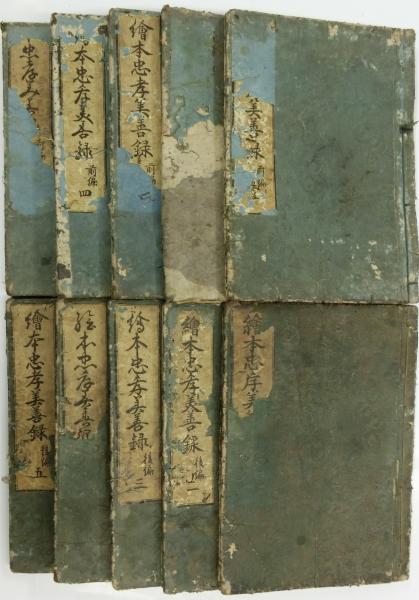 美善録 前編
繪本忠孝美善録 前編
本忠孝美善録 前編 四
忠孝美善
繪本忠孝美
繪本忠孝美善録 後編 二
繪本忠孝美善録 後編 三
繪本忠孝美善録
繪本忠孝美善録 後編 五